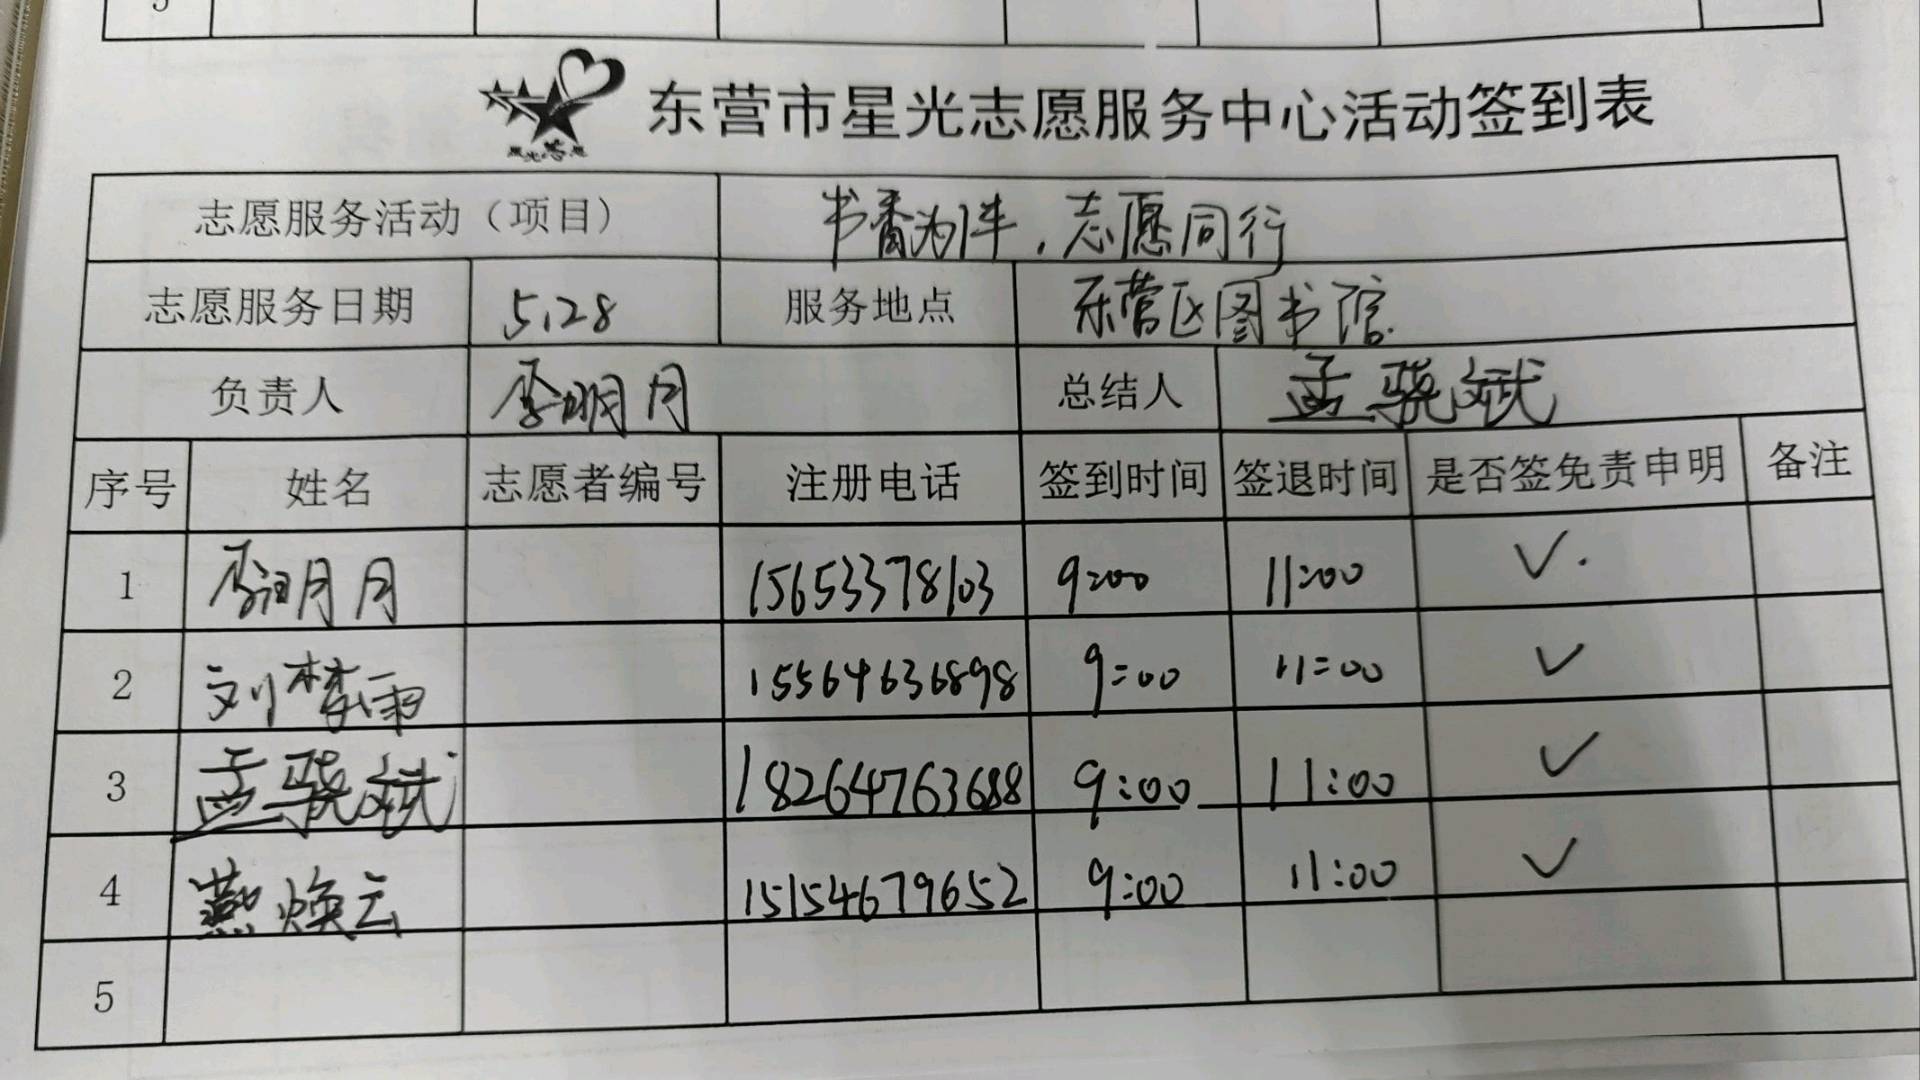 5
星光志愿
东营市星光志愿服务中心活动签到表
志愿服务活动（项目） 书香为伴，志愿同行
志愿服务日期 5.28 服务地点 东营区图书馆
负责人 李明月 总结人 孟骁斌
序号 姓名 志愿者编号 注册电话 签到时间 签退时间 是否签免责申明 备注
1 李明月 15653378103 9:00 11:00 ✓
2 刘梦雨 15564636898 9:00 11:00 ✓
3 孟骁斌 18264763688 9:00 11:00 ✓
4 燕焕云 15154679652 9:00 11:00 ✓
5